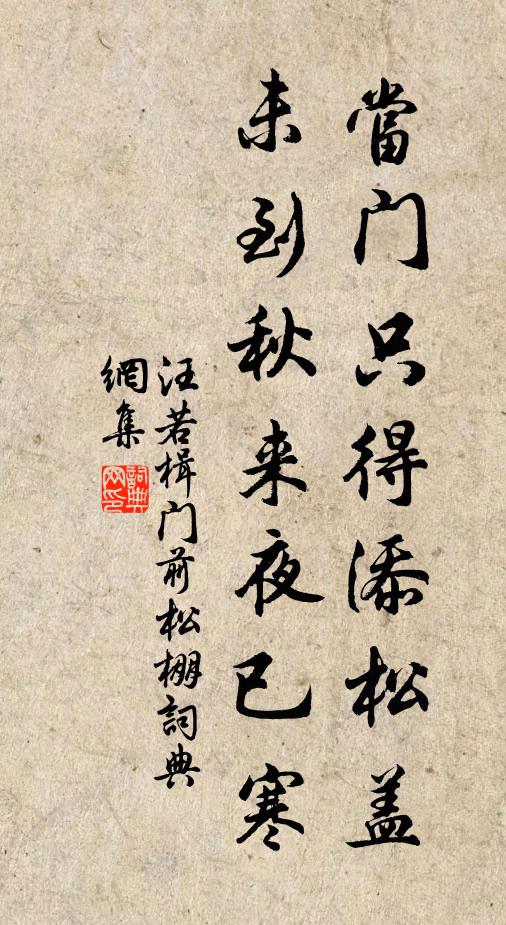 當门只得添松盖
未到秋来夜已寒
汪若楫门前松棚詞典
網集
詞典
网印